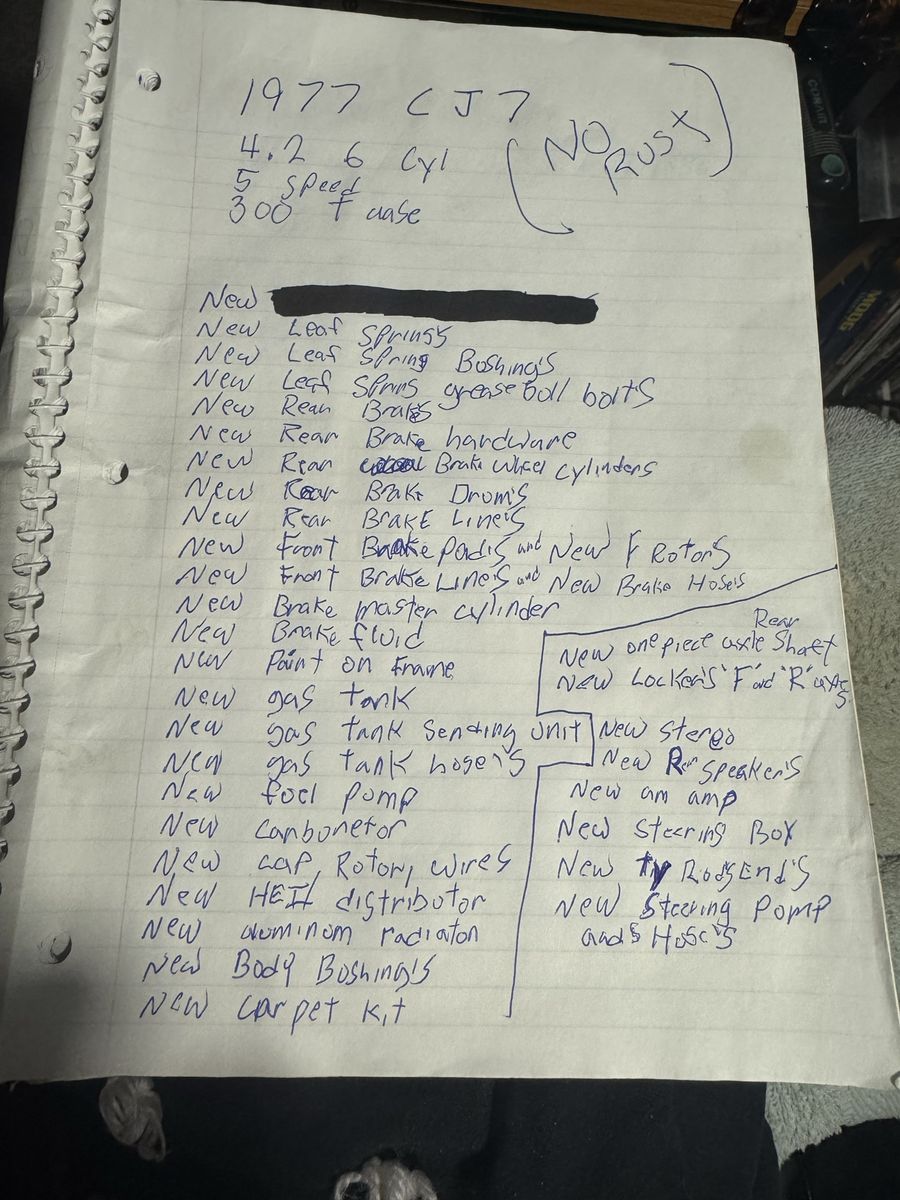 1977 CJ7
(NO RUST)
4.2 6 cyl
5 speed
300 T case
New
New Leaf Springs
New Leaf Spring Boshing's
New Leaf Spring grease boll bolts
New Rear Brakes
New Rear Brake hardware
New Rear Brake wheel cylinders
New Rear Brake Drom's
New Rear BRAKE Line's
New Front Brake Padis and New F Rotors
New Front Brake Line's and New Brake Hose's
New Brake master cylinder
New Brake fluid
New Paint on Frame
New gas tank
New gas tank Sending unit
New gas tank hose's
New foel pomp
New carbonetor
New cap, Rotor, wires
New HEI distributor
New aluminom radiator
New Body Boshing's
New carpet kit
New one piece Rear axle Shaft
New Locker's "F" and "R"
New Stereo
New Rear Speaker's
New am amp
New Steering Box
New ty Rods End's
New Steering Pomp
and Hose's
CONAIR
MODS